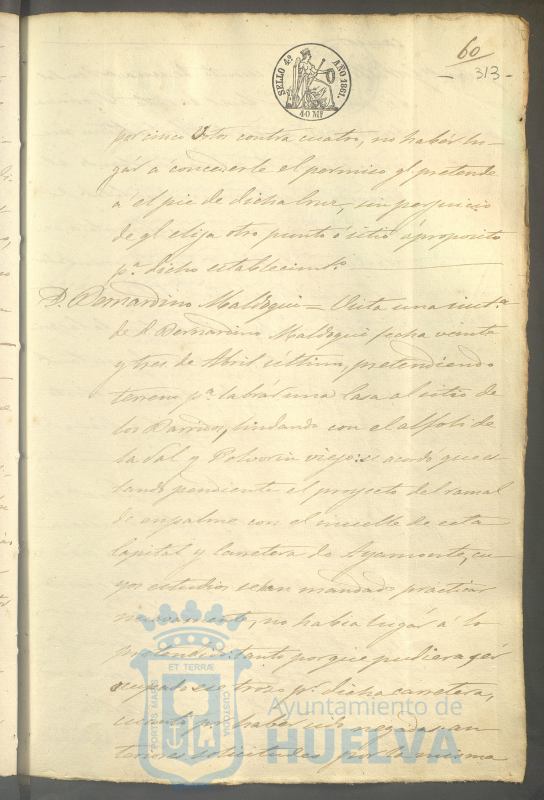 60
- 313 -
SELLO 4º AÑO 1861.
40 Mˢ
por cinco votos contra cuatro, no haber lu-
gár a concederle el permiso qᵉ pretende
a el pie de dicha Cruz, sin perjuicio
de qᵉ elija otro punto ó sitio aproposito
pª dicho establecimtº.
D. Bernardino Maldoqui = Vista una instª
de D. Bernardino Maldoqui fecha veinte
y tres de Abril último, pretendiendo
terreno pª labrár una Casa al sitio de
los Barridos, lindando con el alfolí de
la Sal y Polvorin viejo: se acordó que es-
tando pendiente el proyecto del ramal
de empalme con el muelle de esta
Capital y Carretera de Ayamonte, cu-
yos estudios se han mandado practicar
nuevamente, no habia lugár á lo
pretendido: tanto porque pudiera ser
ocupado ese trozo pʳ dicha carretera,
cuanto por haber sido negadas an-
teriores solicitudes por la misma
PORTUS MARIS
ET TERRÆ
CUSTODIA
Ayuntamiento de
HUELVA